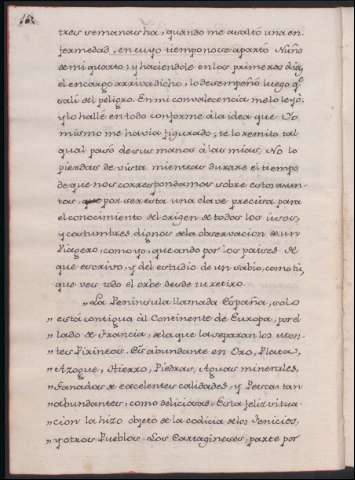 tres semanas ha, quando me asaltó una en-
fermedad, en cuyo tiempo no se apartó Nuño
de mi quarto, y haciendole en los primeros dias
el encargo arriva dicho, lo desempeñó luego qe
salí del peligro. En mi convalecencia me lo leyó;
y lo hallé en todo conforme á la idea que Yo
mismo me havia figurado; te lo remito tal
qual pasó de sus manos á las mias; No lo
pierdas de vista mientras durare el tiempo
de que nos correspondamos sobre estos asun-
tos, por ser esta una clave precisa para
el conocimiento del origen de todos los usos,
y costumbres dignos de la observacion de un
Viagero, como yo, que ando por los paises de
que escrivo, y del estudio de un sabio, como tú,
que ves todo el orbe desde tu retiro.
"La Peninsula llamada España, solo
"está contigua al Continente de Europa, por el
"lado de Francia, de la que la separan los mon-
"tes Pirineos. Es abundante en Oro, Plata,
"Azogue, Hierro, Piedras, Aguas minerales,
"Ganados de excelentes calidades, y Pescas tan
"abundantes, como deliciosas. Esta feliz situa-
"cion la hizo objeto de la codicia de los Fenicios,
"y otros Pueblos. Los Cartagineses, parte por